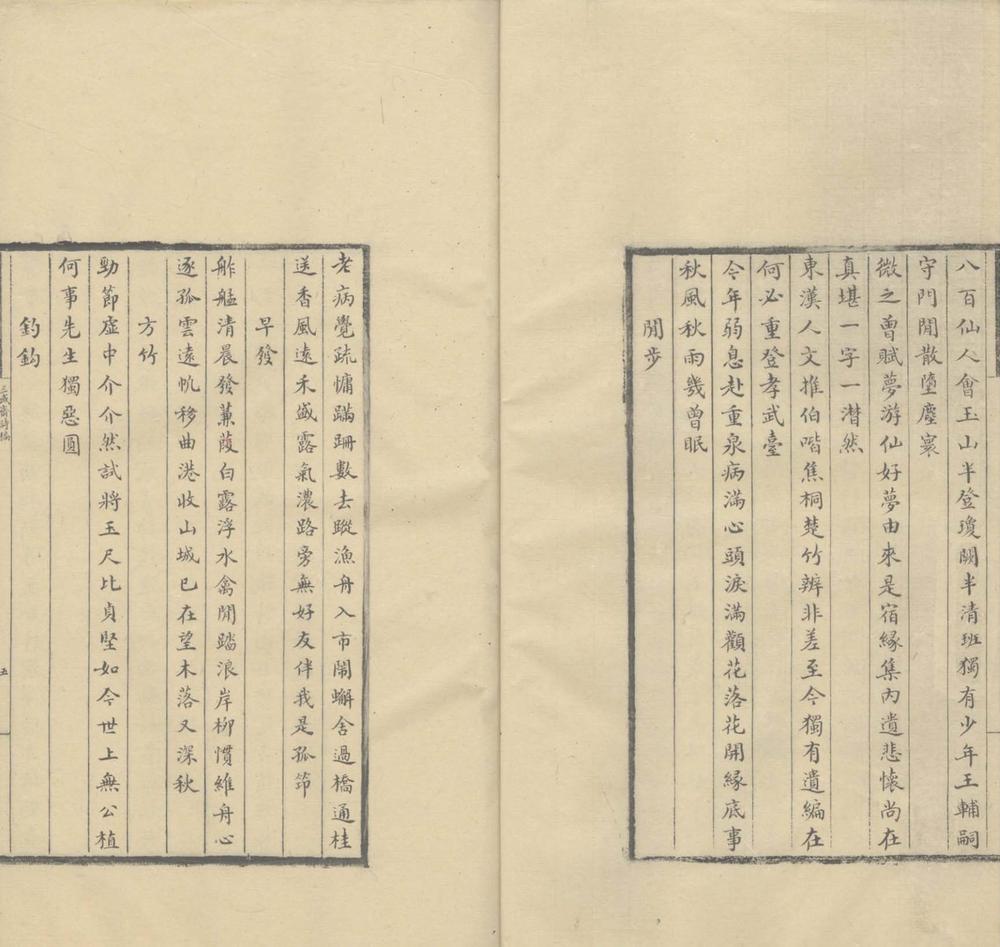 八百仙人會玉山半登瓊闕半清班獨有少年王輔嗣
守門閒散墮塵寰
微之曾賦夢游仙好夢由來是宿緣集內遺悲懷尚在
真堪一字一潸然
東漢人文推伯喈焦桐楚竹辨非差至今獨有遺編在
何必重登孝武臺
今年弱息赴重泉病滿心頭淚滿顴花落花開緣底事
秋風秋雨幾曾眠
閒步
老病覺疏慵蹣跚數去蹤漁舟入市鬧蠏舍過橋通桂
送香風遠禾盛露氣濃路旁無好友伴我是孤筇
早發
舴艋清晨發蒹葭白露浮水禽閒踏浪岸柳慣維舟心
逐孤雲遠帆移曲港收山城已在望木落又深秋
方竹
勁節虛中介介然試將玉尺比貞堅如今世上無公植
何事先生獨惡圓
釣鈎
五